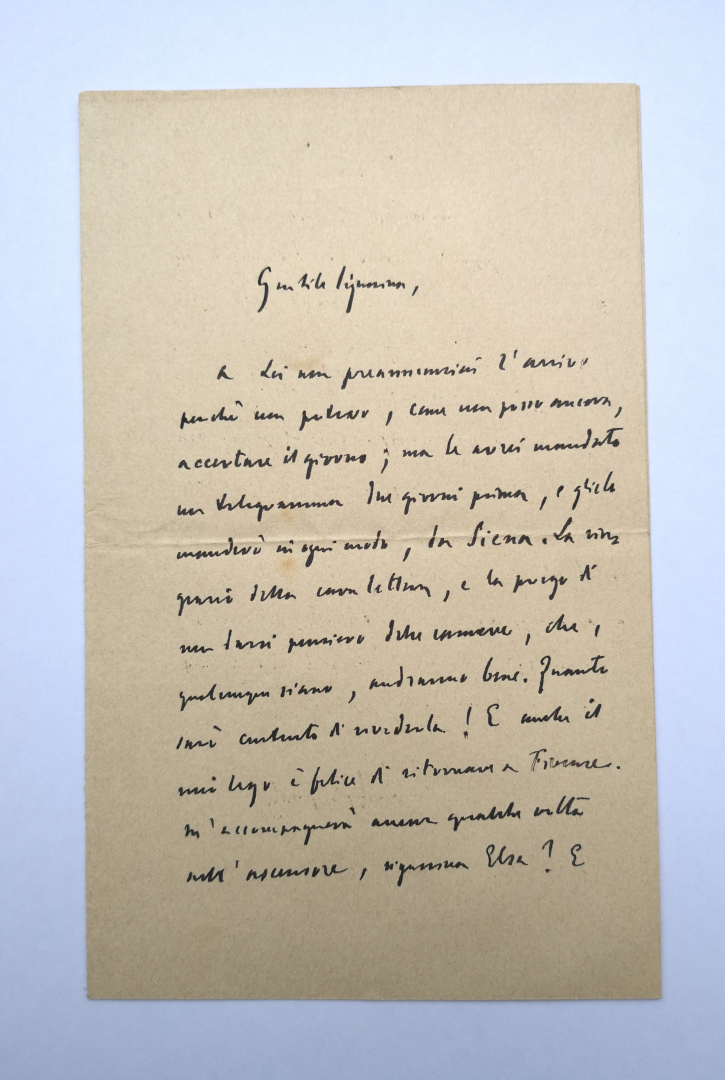 Gentile Signorina,
a Lei non preannunciai l'arrivo
perchè non potevo, come non posso ancora,
accertare il giorno; ma le avrei mandato
un telegramma due giorni prima, e glielo
manderò in ogni modo, da Siena. La rin-
grazio della cara lettera, e la prego di
non darsi pensiero delle camere, che,
qualunque siano, andranno bene. Quanto
sarò contento di rivederla! E anche il
mio è felice di ritornare a Firenze.
M'accompagnerà ancora qualche volta
nell'ascensore, signorina Elsa? E